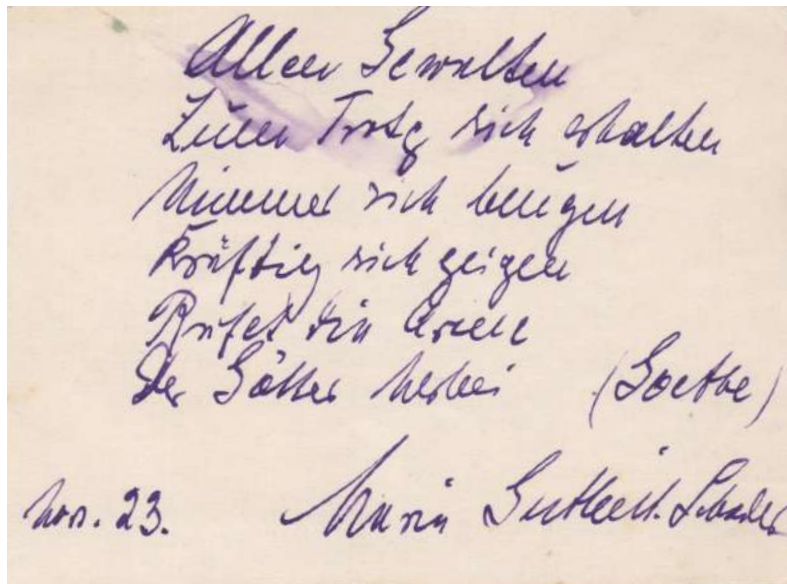 Allen Gewalten
Zum Trotz sich erhalten
Nimmer sich beugen
Kräftig sich zeigen
Rufet die Arme
Der Götter herbei (Goethe)
Nov. 23. Maria